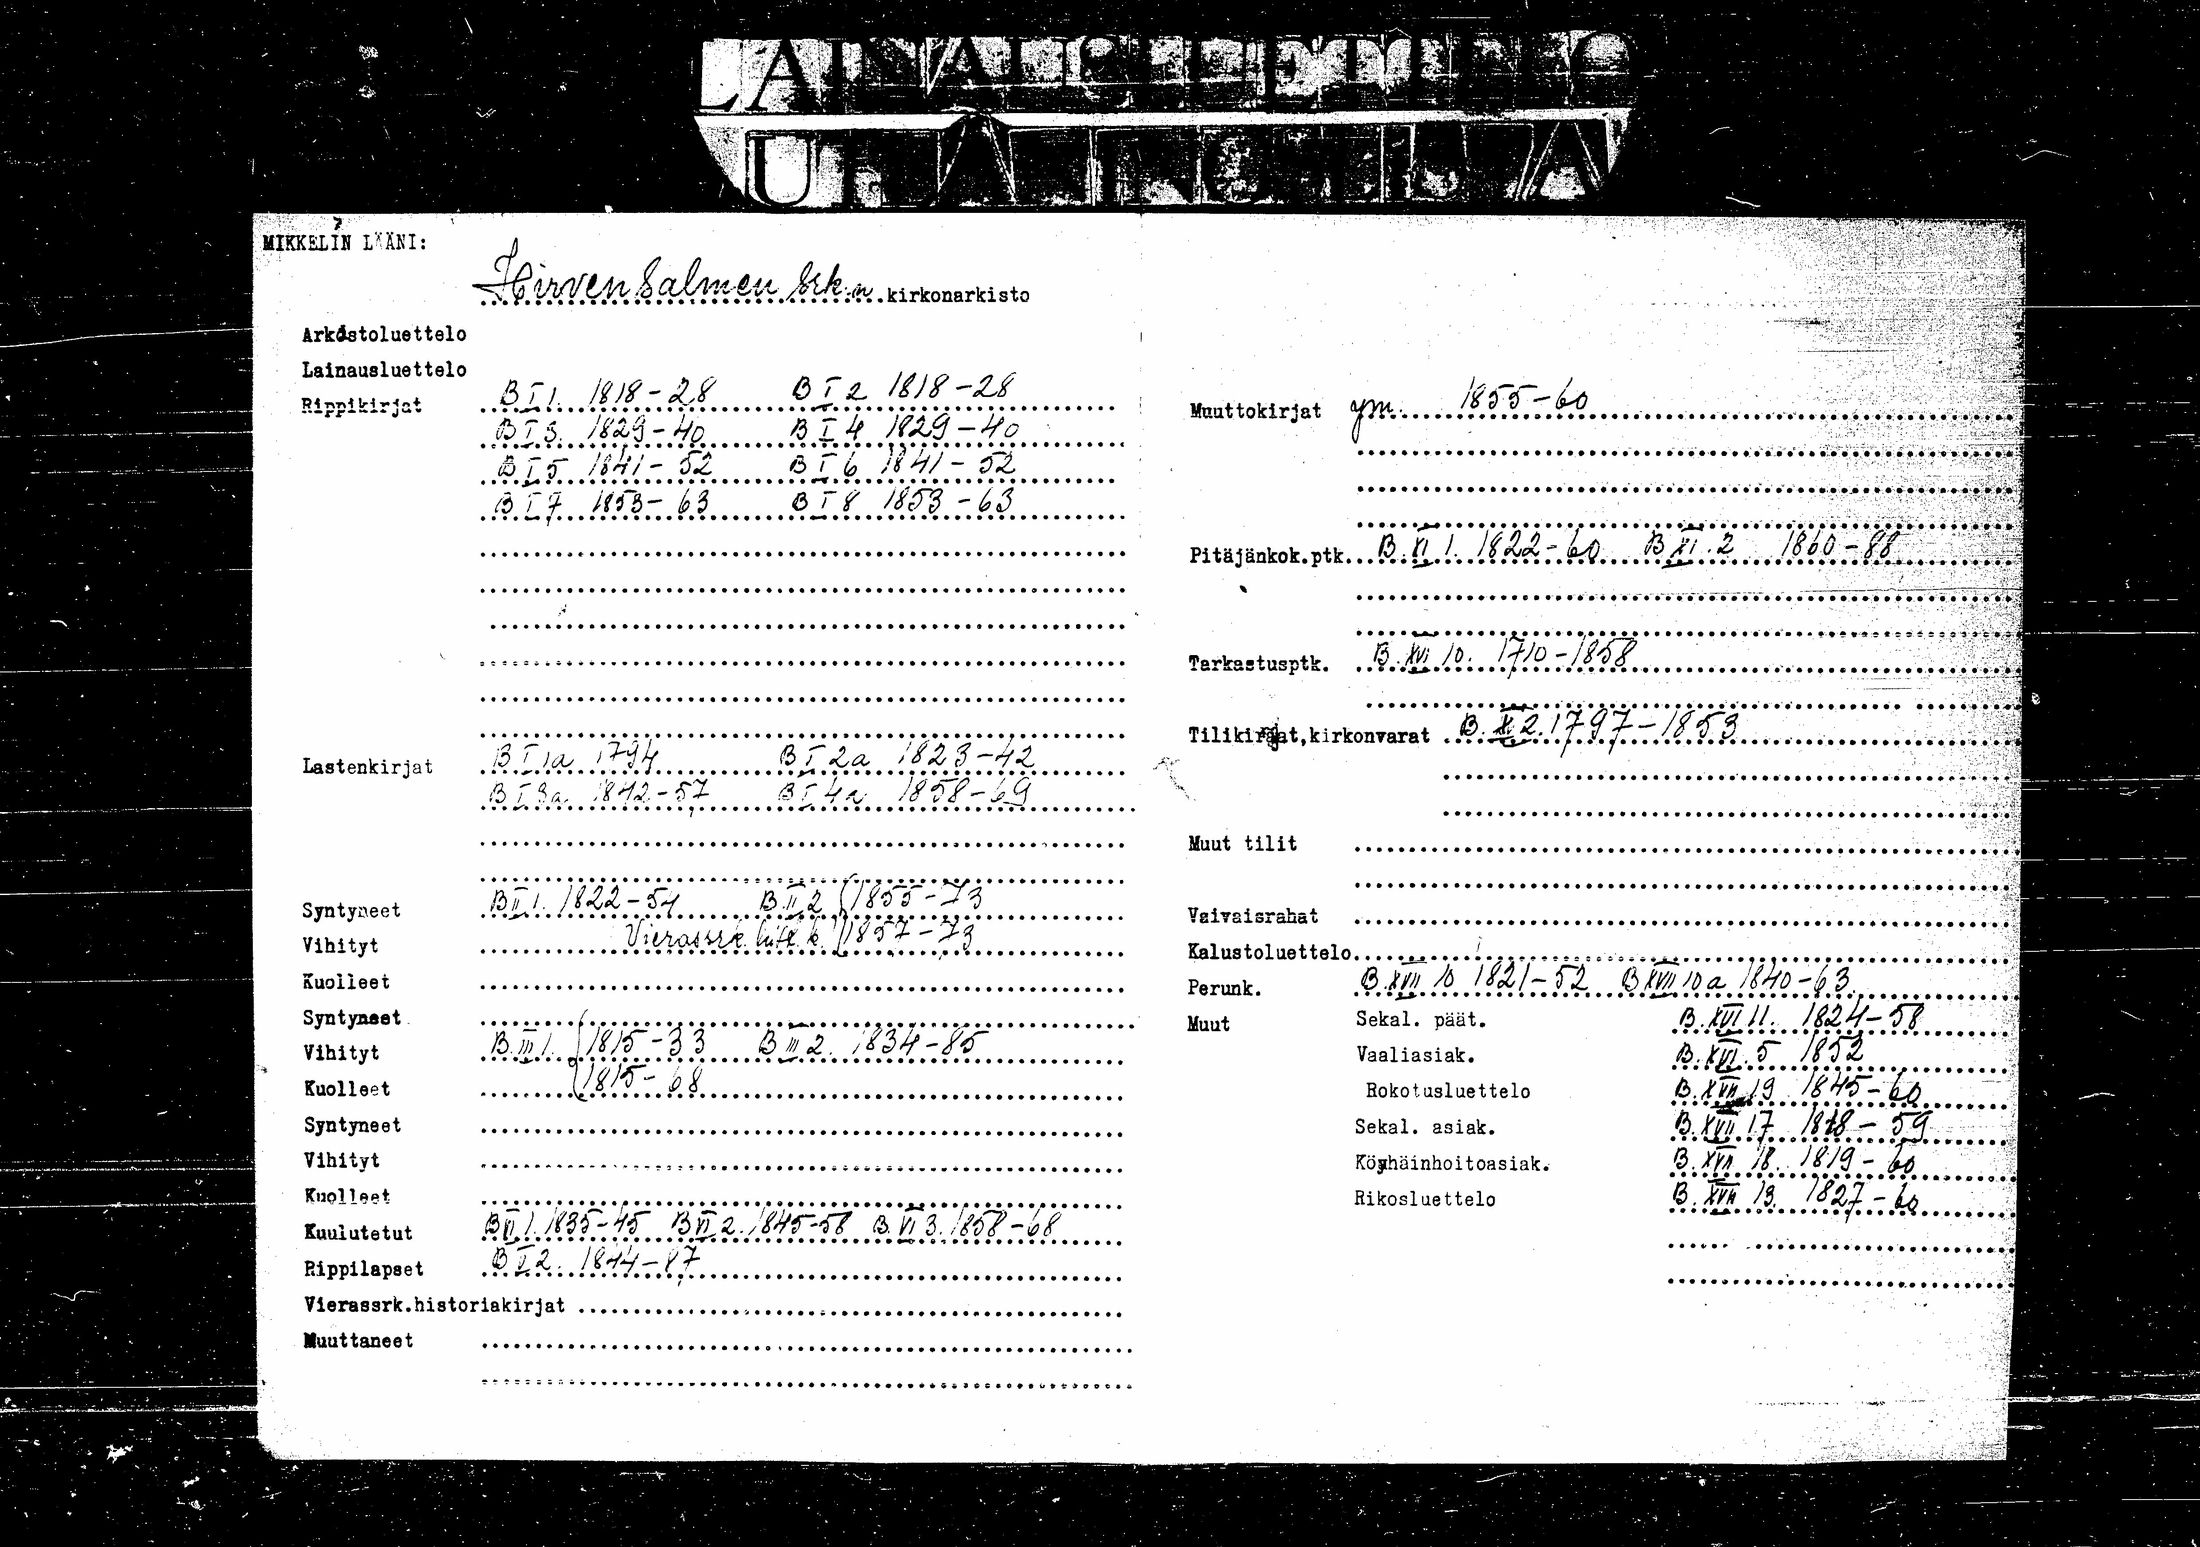 LAINAUSLUETTELO
MIKKELIN LÄÄNI:
Hirvensalmen srk:n kirkonarkisto
Arkistoluettelo
Lainausluettelo
Rippikirjat B I 1. 1818-28 B I 2 1818-28
B I 3. 1829-40 B I 4 1829-40
B I 5 1841-52 B I 6 1841-52
B I 7 1853-63 B I 8 1853-63
Lastenkirjat B I 1a 1794 B I 2a 1823-42
B I 3a 1842-57 B I 4a 1858-69
Syntyneet B II 1. 1822-54 B II 2 1855-73
Vihityt Vierassrk. 1857-73
Kuolleet
Syntyneet
Vihityt B III 1. 1815-33 B III 2. 1834-85
Kuolleet 1815-68
Syntyneet
Vihityt
Kuolleet
Kuulutetut B VI 1. 1835-45 B VI 2. 1845-58 B VI 3. 1858-68
Rippilapset B I 2. 1844-87
Vierassrk.historiakirjat
Muuttaneet
Muuttokirjat ym. 1855-60
Pitäjänkok.ptk. B XI 1. 1822-60 B XI 2 1860-88
Tarkastusptk. B XVI 10. 1710-1858
Tilikirjat,kirkonvarat B. 2. 1797-1853
Muut tilit
Vaivaisrahat
Kalustoluettelo
Perunk. B XVII 10 1821-52 B XVII 10a 1840-63
Muut Sekal. päät. B. XVI 11. 1824-58
Vaaliasiak. B. XVI. 5 1852
Rokotusluettelo B. XVII 19 1845-60
Sekal. asiak. B. XVII 17 - 59
Köyhäinhoitoasiak. B. XVII 18. 1819-60
Rikosluettelo B. XVII 13. 1827-60